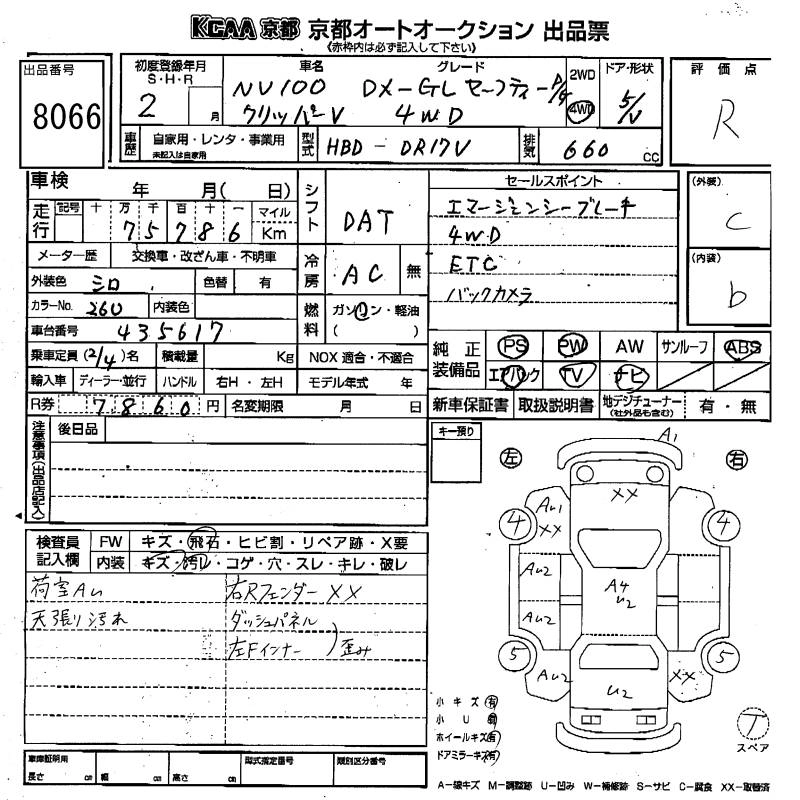 KCAA 京都 京都オートオークション 出品票
《赤枠内は必ず記入して下さい》
出品番号
8066
初度登録年月
S・H・R
2 月
車名 グレード
NV100 DX-GL セーフティ-P/g
クリッパーV 4WD
2WD
4WD
ドア・形状
5/V
評価点
R
車歴
自家用・レンタ・事業用
未記入は自家用
型式
HBD-DR17V
排気
660 cc
車検 年 月( 日)
走行
記号 十 万 千 百 十 一 マイル
7 5 7 8 6 Km
メーター歴 交換車・改ざん車・不明車
外装色 シロ 色替 有
カラーNo. 26U 内装色
車台番号 435617
乗車定員 (2/4)名 積載量 Kg
輸入車 ディーラー・並行 ハンドル 右H・左H
R券 7860 円 名変期限 月 日
シフト DAT
冷房 AC 無
燃料 ガソリン・軽油
( )
NOX 適合・不適合
モデル年式 年
セールスポイント
エマージェンシーブレーキ
4WD
ETC
バックカメラ
(外装)
C
(内装)
b
純正装備品
PS PW AW サンルーフ ABS
エアバック TV ナビ
新車保証書 取扱説明書 地デジチューナー(社外品も含む) 有・無
注意事項(出品店記入)
後日品
キー預り
検査員記入欄
FW キズ・飛石・ヒビ割・リペア跡・X要
内装 キズ・汚レ・コゲ・穴・スレ・キレ・破レ
荷室AU 右Rフェンダー XX
天張り汚れ ダッシュパネル
左Fインナー ) 歪み
左 右
A1
XX
AU1
XX
4 4
AU2
A4
U2
AU2
5 5
AU2
U2
XX
小キズ(有)
小U
ホイールキズ(有)
ドアミラーキズ(有)
T
スペア
車庫証明用
長さ cm 幅 cm 高さ cm
型式指定番号
類別区分番号
A-線キズ M-調整跡 U-凹み W-補修跡 S-サビ C-腐食 XX-取替済